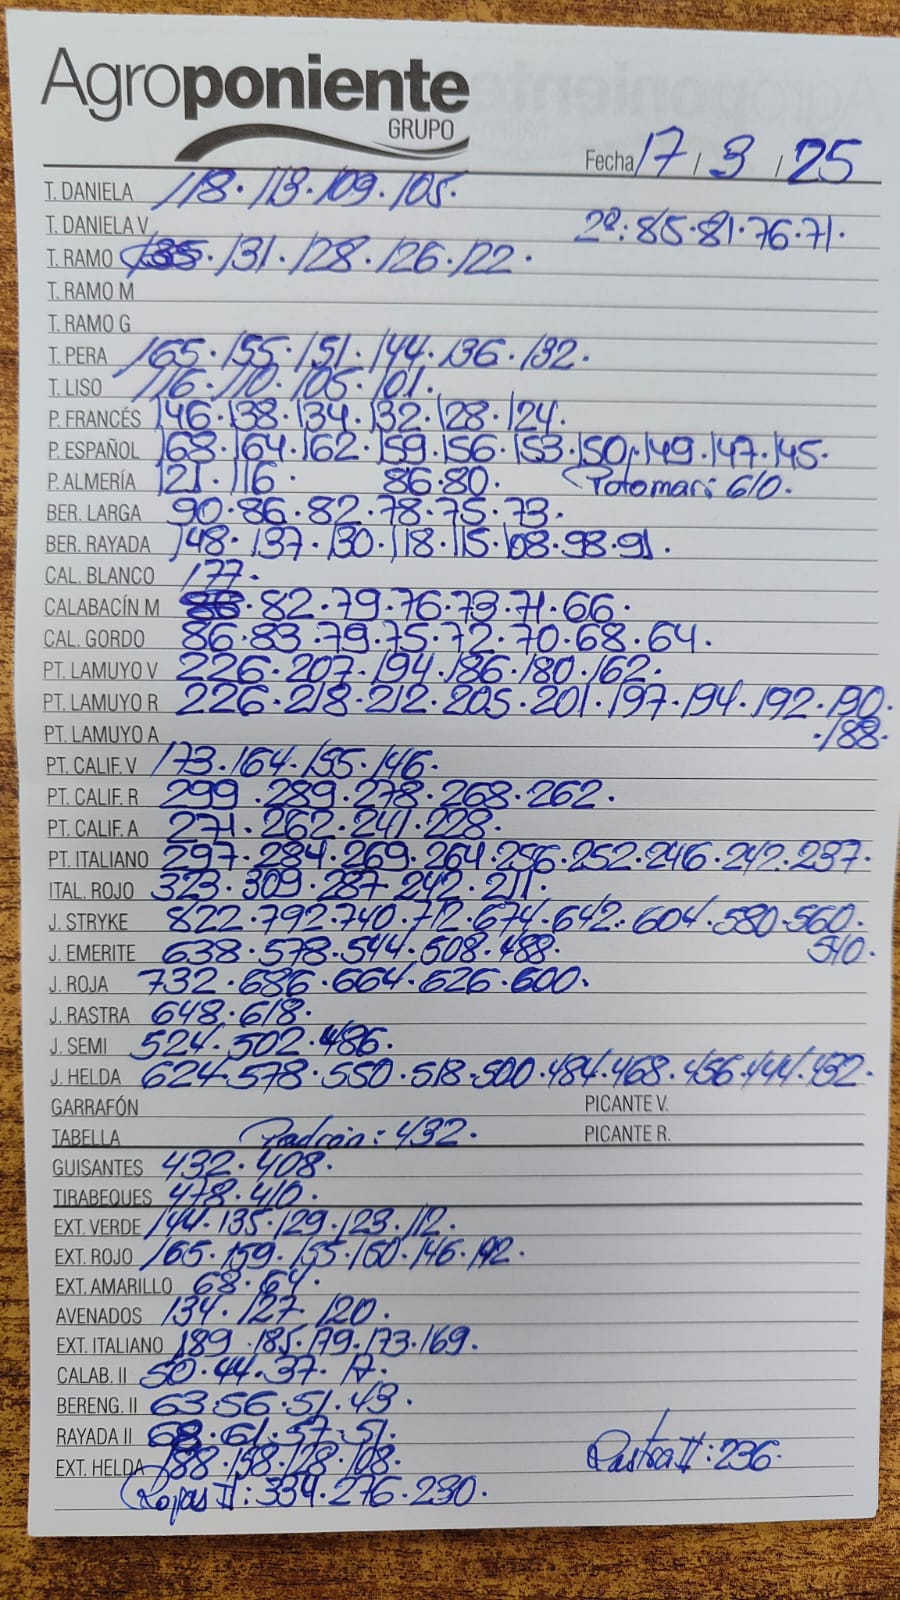 Agroponiente
GRUPO
Fecha 17 / 3 / 25
T. DANELA 118 · 113 · 109 · 105 ·
T. DANIELA V 2ª: 85 · 81 · 76 · 71 ·
T. RAMO 135 · 131 · 128 · 126 · 122 ·
T. RAMO M
T. RAMO G
T. PERA 165 · 155 · 151 · 144 · 136 · 132 ·
T. LISO 116 · 110 · 105 · 101 ·
P. FRANCÉS 146 · 138 · 134 · 132 · 128 · 124 ·
P. ESPAÑOL 168 · 164 · 162 · 159 · 156 · 153 · 150 · 149 · 147 · 145 ·
P. ALMERÍA 121 · 116 · 86 · 80 · Potomari: 610 ·
BER. LARGA 90 · 86 · 82 · 78 · 75 · 73 ·
BER. RAYADA 148 · 137 · 130 · 118 · 115 · 108 · 98 · 91 ·
CAL. BLANCO 177 ·
CALABACÍN M 86 · 82 · 79 · 76 · 73 · 71 · 66 ·
CAL. GORDO 86 · 83 · 79 · 75 · 72 · 70 · 68 · 64 ·
PT. LAMUYO V 226 · 207 · 194 · 186 · 180 · 162 ·
PT. LAMUYO R 226 · 218 · 212 · 205 · 201 · 197 · 194 · 192 · 190 ·
PT. LAMUYO A · 188 ·
PT. CALIF. V 173 · 164 · 155 · 146 ·
PT. CALIF. R 299 · 289 · 278 · 268 · 262 ·
PT. CALIF. A 271 · 262 · 241 · 228 ·
PT. ITALIANO 297 · 284 · 269 · 264 · 256 · 252 · 246 · 242 · 237 ·
ITAL. ROJO 323 · 309 · 287 · 242 · 211 ·
J. STRYKE 822 · 792 · 740 · 712 · 674 · 642 · 604 · 580 · 560 ·
J. EMERITE 638 · 578 · 544 · 508 · 488 · 540 ·
J. ROJA 732 · 686 · 664 · 626 · 600 ·
J. RASTRA 648 · 618 ·
J. SEMI 524 · 502 · 486 ·
J. HELDA 624 · 578 · 550 · 518 · 500 · 484 · 468 · 456 · 444 · 432 ·
GARRAFÓN PICANTE V.
TABELLA Padrón: 432 · PICANTE R.
GUISANTES 432 · 408 ·
TIRABEQUES 478 · 410 ·
EXT. VERDE 144 · 135 · 129 · 123 · 112 ·
EXT. ROJO 165 · 159 · 155 · 150 · 146 · 142 ·
EXT. AMARILLO 68 · 64 ·
AVENADOS 134 · 127 · 120 ·
EXT. ITALIANO 189 · 185 · 179 · 173 · 169 ·
CALAB. II 50 · 44 · 37 · 17 ·
BERENG. II 63 · 56 · 51 · 43 ·
RAYADA II 68 · 61 · 57 · 51 ·
EXT. HELDA 188 · 158 · 128 · 108 · Rastra II: 236 ·
Rojas II: 334 · 276 · 230 ·